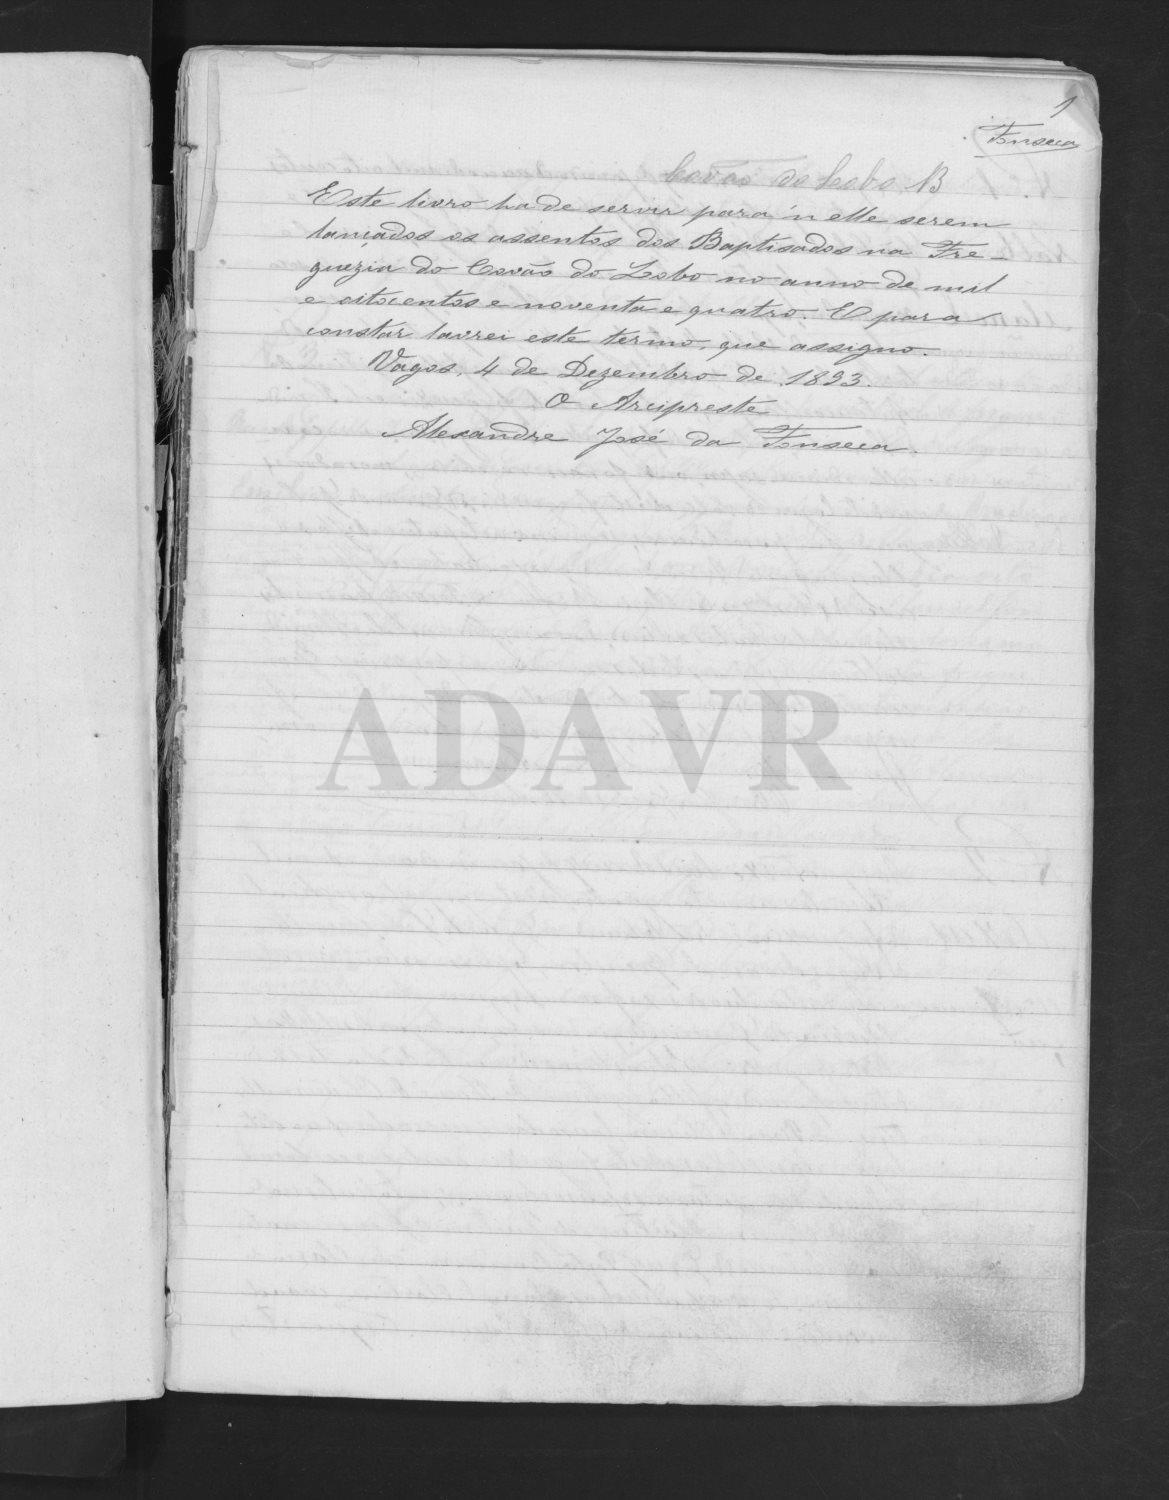 1
Fonseca
Covão do Lobo B
Este livro ha de servir para n'elle serem
lançados os assentos dos Baptisados na Fre-
guezia do Covão do Lobo no anno de mil
e oitocentos e noventa e quatro. E para
constar lavrei este termo, que assigno.
Vagos, 4 de Dezembro de 1893.
O Arcipreste
Alexandre José da Fonseca.
ADAVR